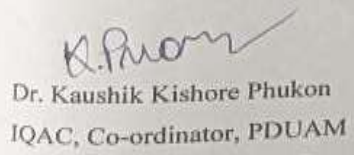 K. Phuon
Dr. Kaushik Kishore Phukon
IQAC, Co-ordinator, PDUAM